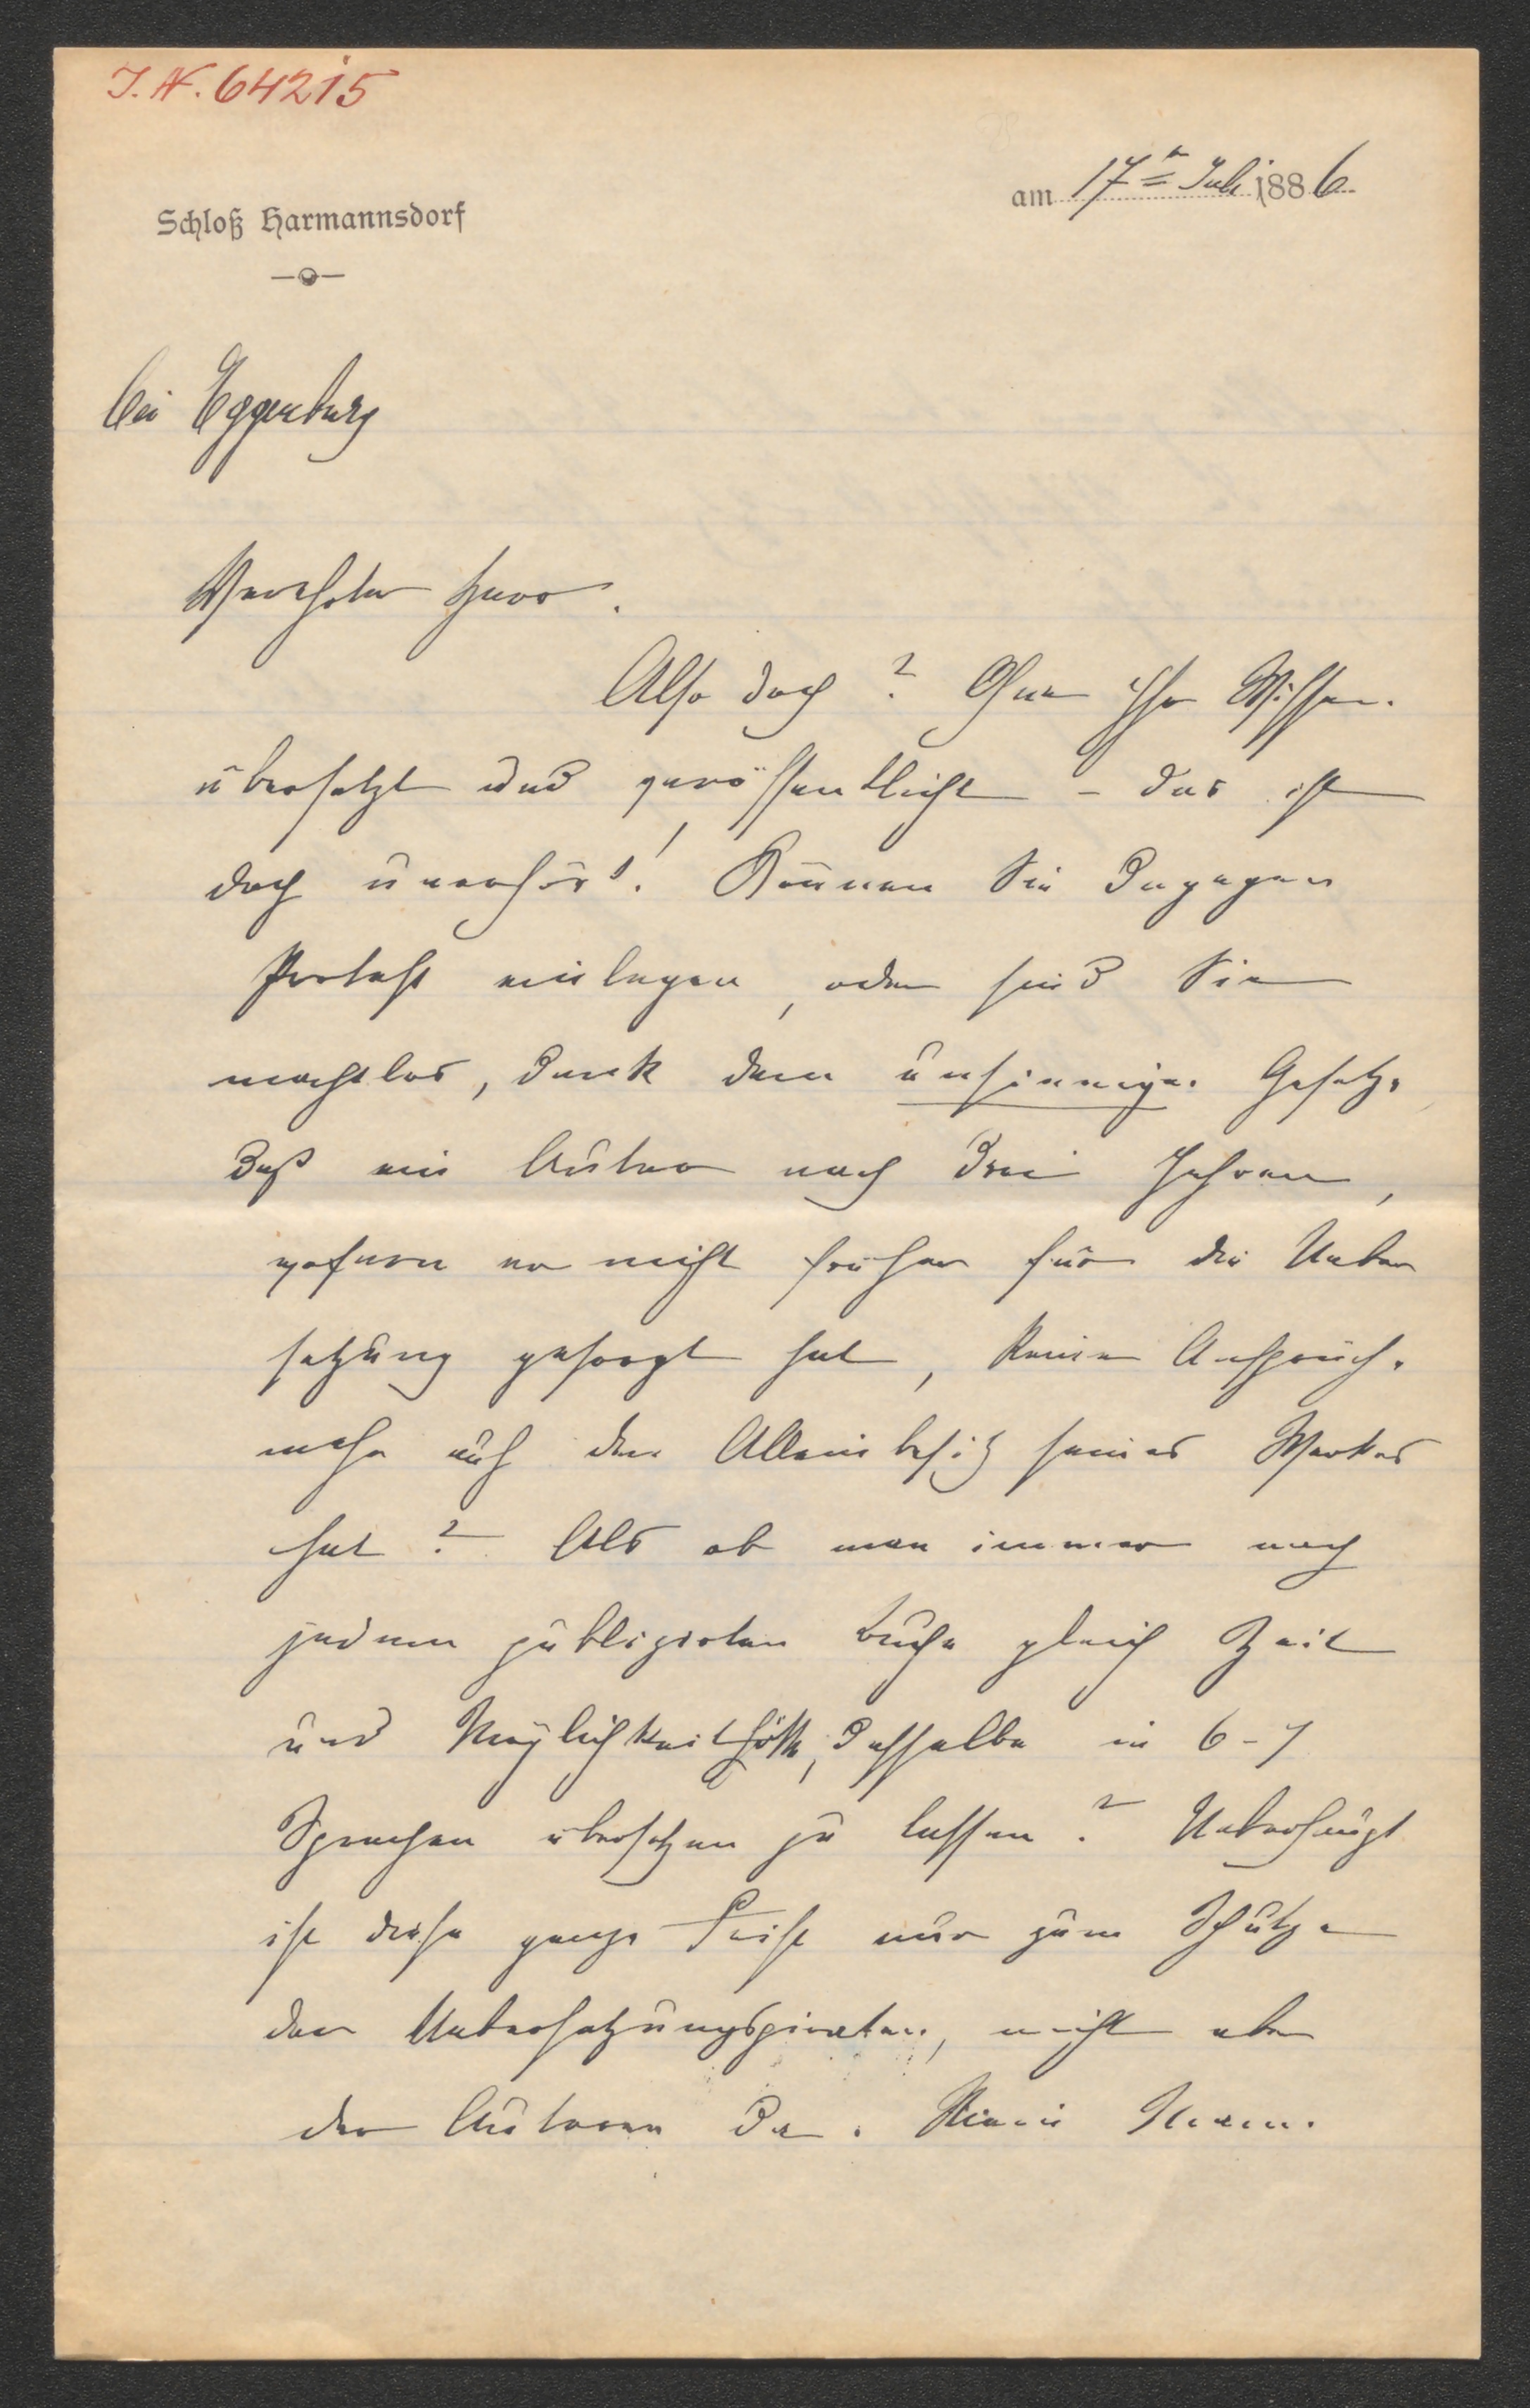 I.N. 64215
am 17ten Juli 1886.
Schloß Harmannsdorf
bei Eggenburg
Verehrter Herr.
Also doch? Ohne Ihr Wissen
übersetzt und veröffentlicht – das ist
doch unerhört! Können Sie dagegen
Protest einlegen, oder sind Sie
machtlos, dank dem unsinnigen Gesetz,
daß ein Autor nach drei Jahren,
wofern er nicht früher für die Ueber
setzung gesorgt hat, keinen Anspruch
mehr auf den Alleinbesitz seines Werkes
hat? Als ob man immer nach
jedem publizirten Buche gleich Zeit
und Möglichkeit hätte, dasselbe in 6–7
Sprachen übersetzen zu lassen? Ueberhaupt
ist diese ganze Frist nur zum Schutze
der Uebersetzungspiraten, nicht aber
der Autoren da.